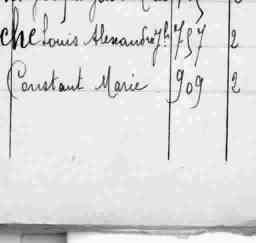 che Louis Alexandre Jh 757 2
Constant Marie 909 2